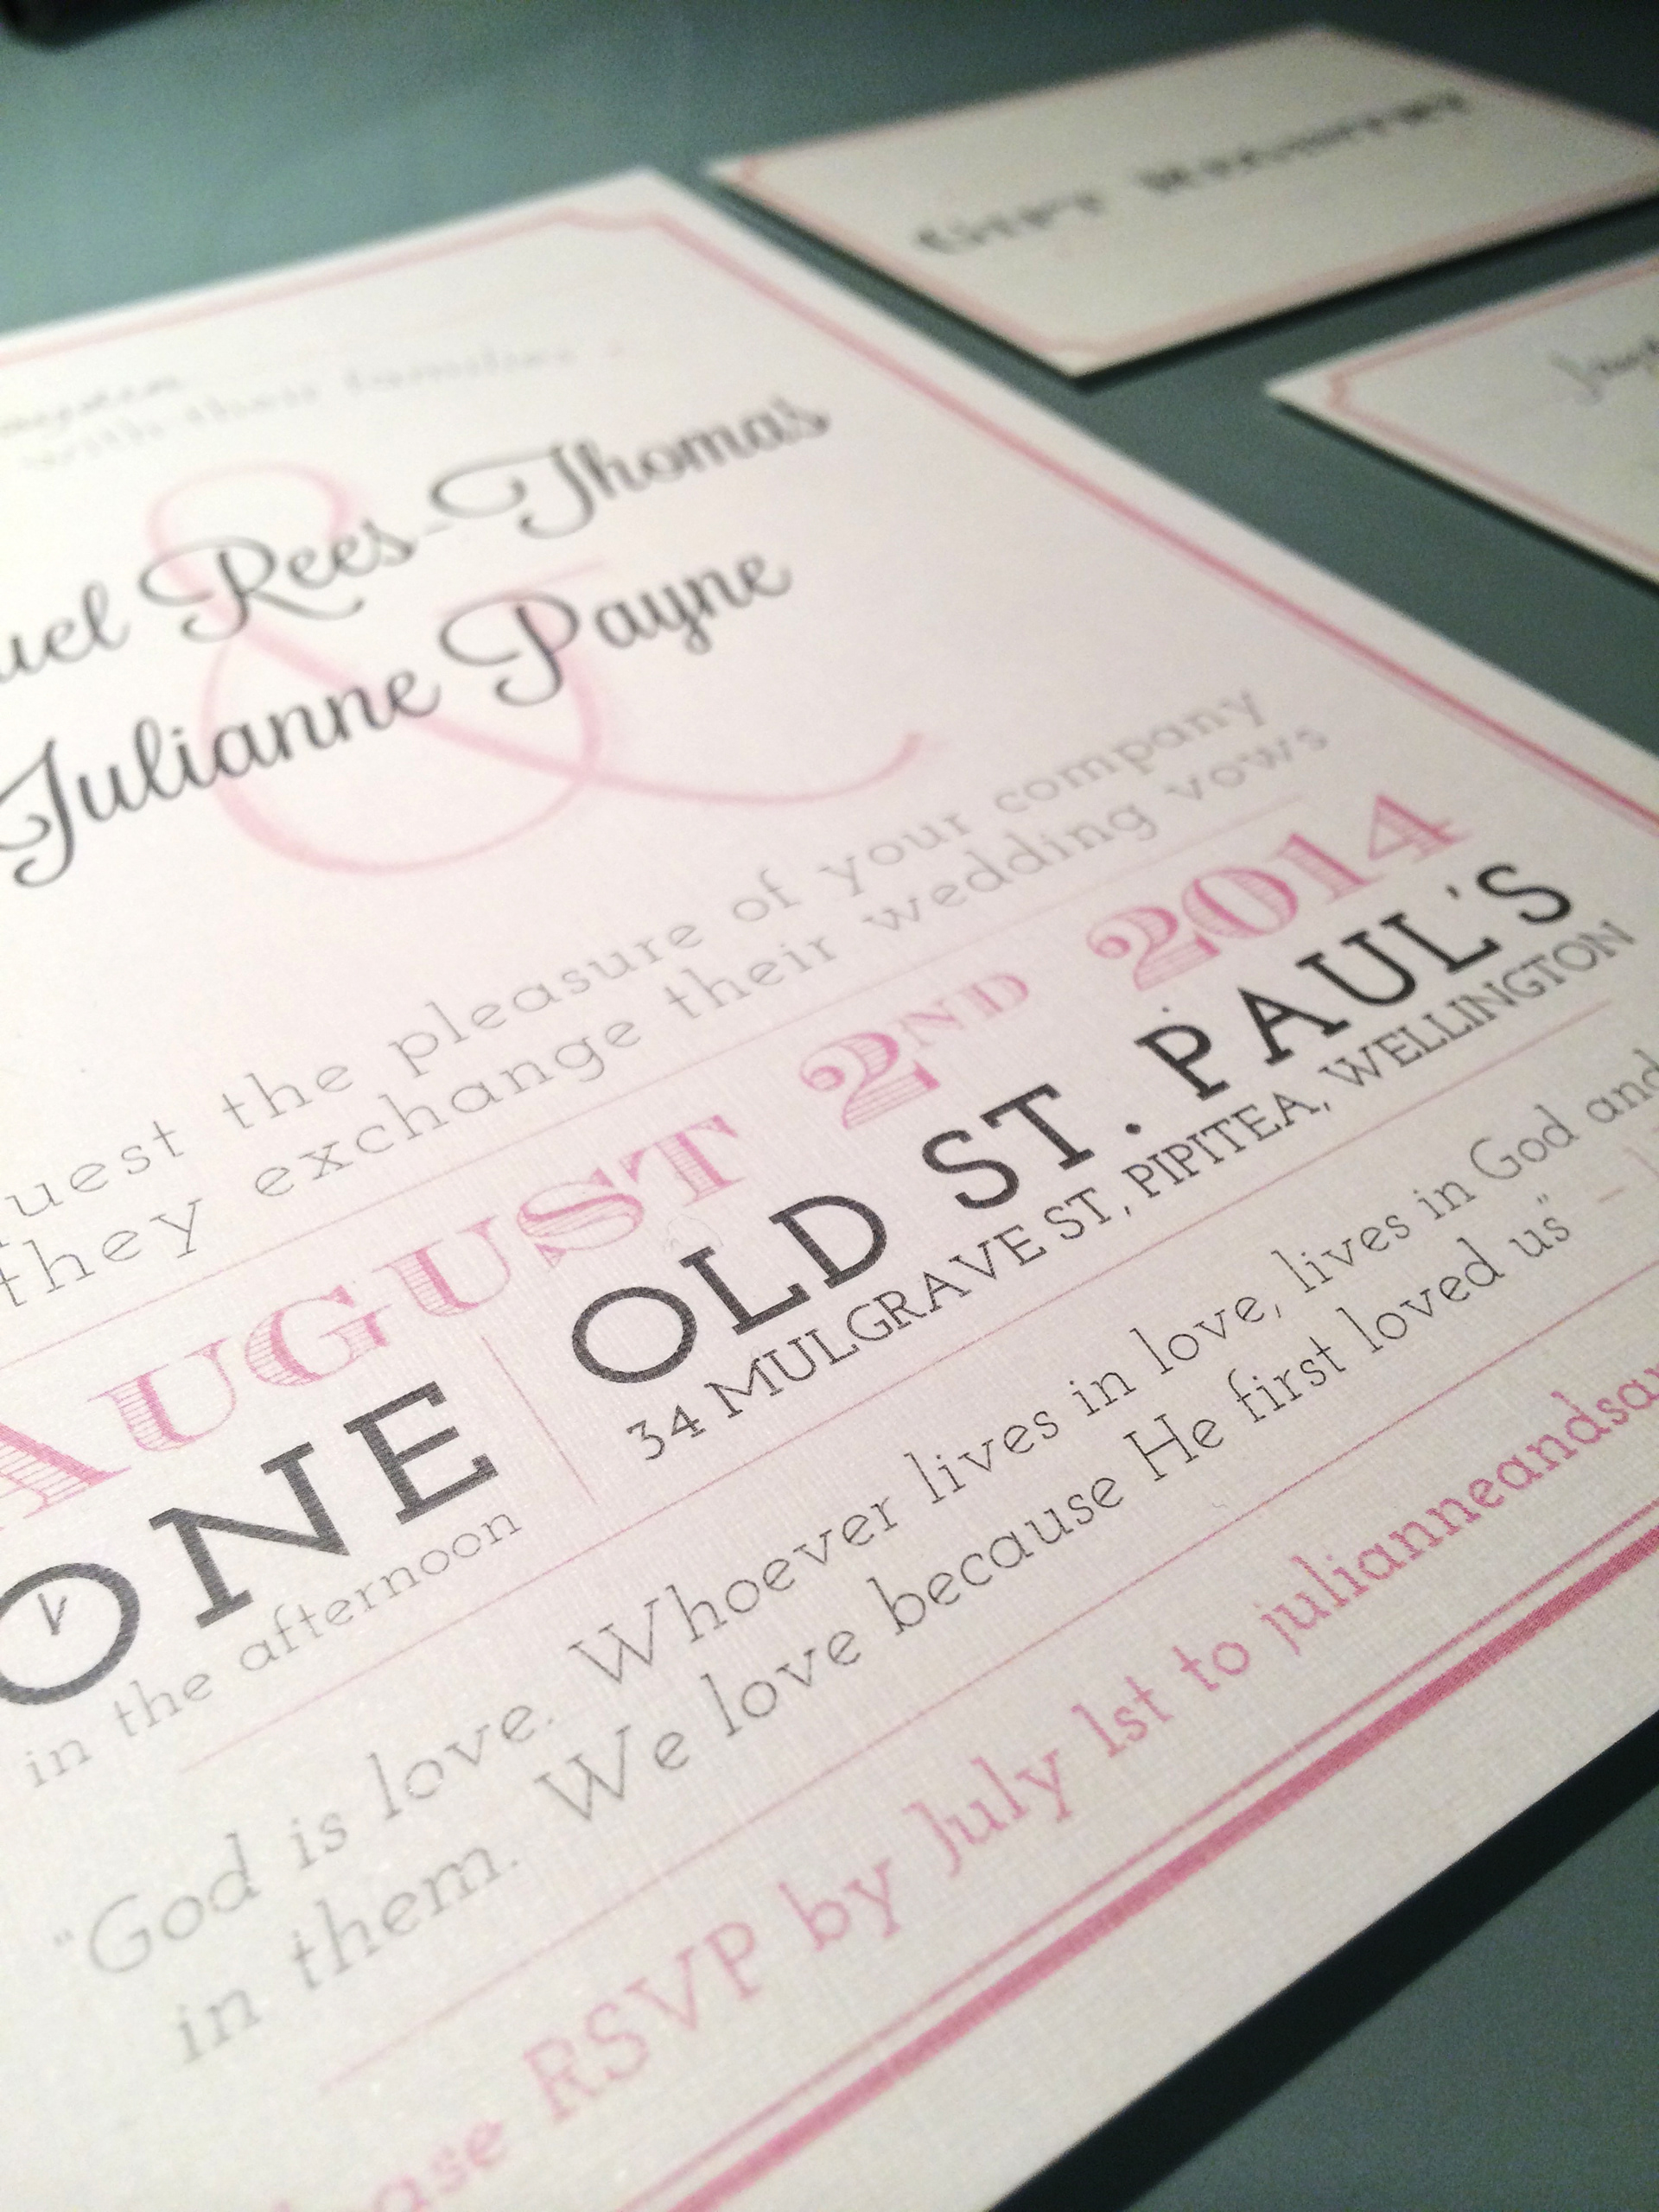 with their families
uel Rees-Thomas
&
Julianne Payne
uest the pleasure of your company
they exchange their wedding vows
AUGUST 2ND 2014
ONE
in the afternoon
OLD ST. PAUL'S
34 MULGRAVE ST, PIPITEA, WELLINGTON
"God is love. Whoever lives in love, lives in God and
in them. We love because He first loved us" –
ase RSVP by July 1st to julianneandsa
GIFT REGISTRY